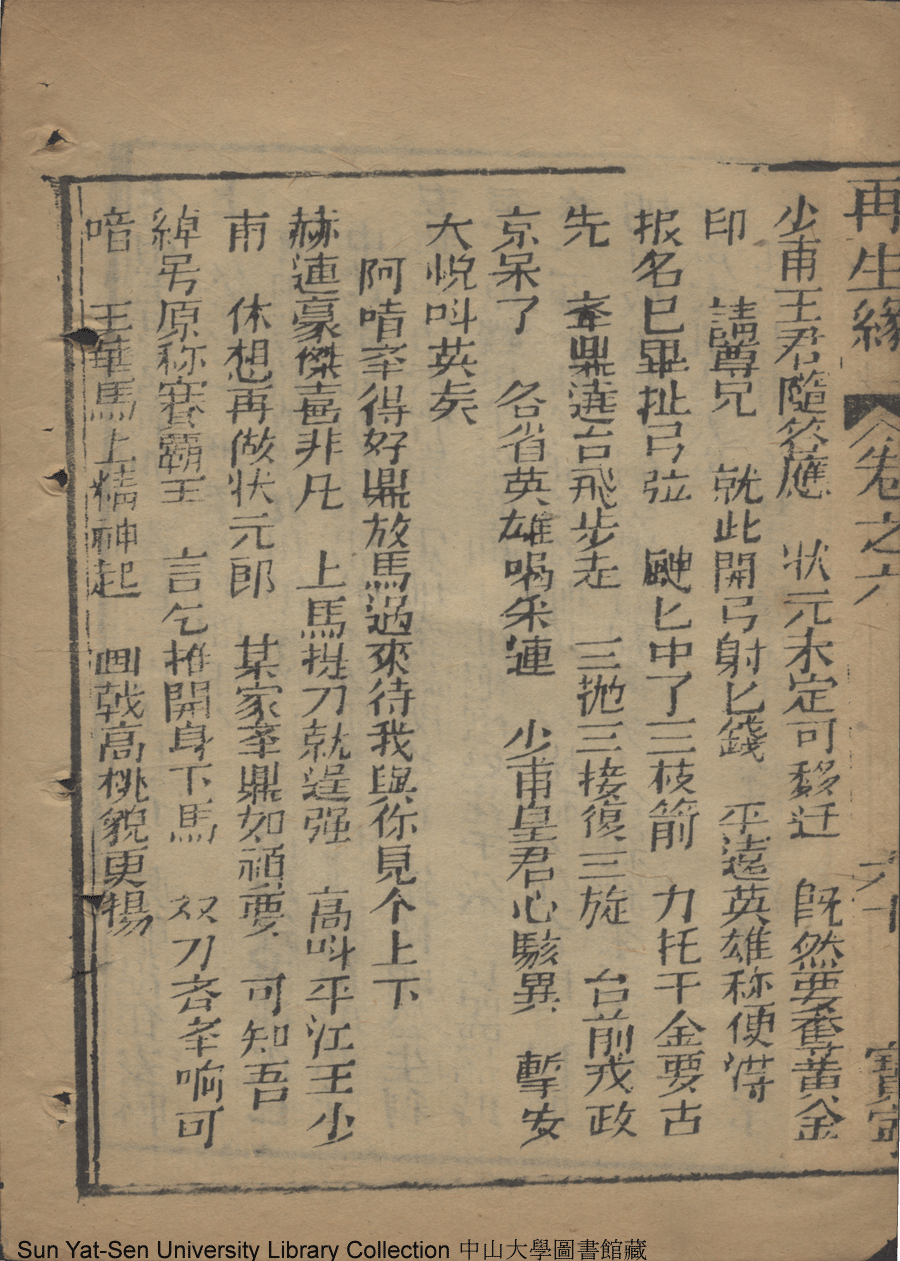 再生緣 卷之六 六十 寶
少甫王君隨答應 状元未定可移迁 既然要奪黃金
印 請尊兄 就此開弓射匕錢 平遠英雄称便得
报名已畢扯弓弦 颼匕中了三枝箭 力托千金要古
先 舉鼎遶台飛步走 三抛三接復三旋 台前戎政
京呆了 各省英雄喝采連 少甫皇君心駭異 暫安
大悅呌英矣
阿唷举得好鼎放馬過來待我與你見个上下
赫連豪傑喜非凡 上馬挺刀就逞强 高呌平江王少
甫 休想再做状元郎 某家举鼎如頑耍 可知吾
綽号原称賽霸王 言乞推開身下馬 双刀吝举响可
喑 王華馬上精神起 画戟高桃貌更揚
Sun Yat-Sen University Library Collection 中山大學圖書館藏